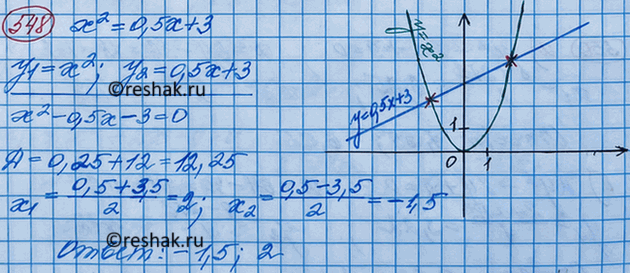 548 x² = 0,5x+3
y₁ = x²; y₂ = 0,5x+3
x² - 0,5x - 3 = 0
Д = 0,25+12 = 12,25
x₁ = (0,5+3,5)/2 = 2; x₂ = (0,5-3,5)/2 = -1,5
Ответ: -1,5; 2
y=x²
y=0,5x+3
1
0 1
©reshak.ru
©reshak.ru